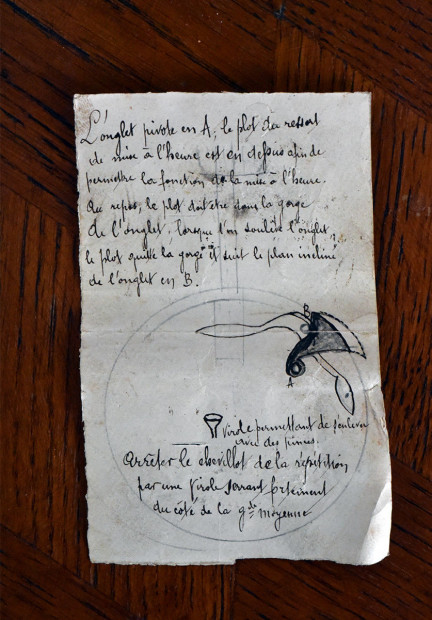 L'onglet pivote en A, le plot du ressort
de mise à l'heure est en dessus afin de
permettre la fonction de la mise à l'heure.
Au repos, le plot doit être dans la gorge
de l'onglet, lorsque l'on soulève l'onglet,
le plot quitte la gorge et suit le plan incliné
de l'onglet en B.
B
A
Virole permettant de soulever
avec des pinces.
Arrêter le chevillot de la répétition
par une virole serrant fortement
du côté de la gde moyenne